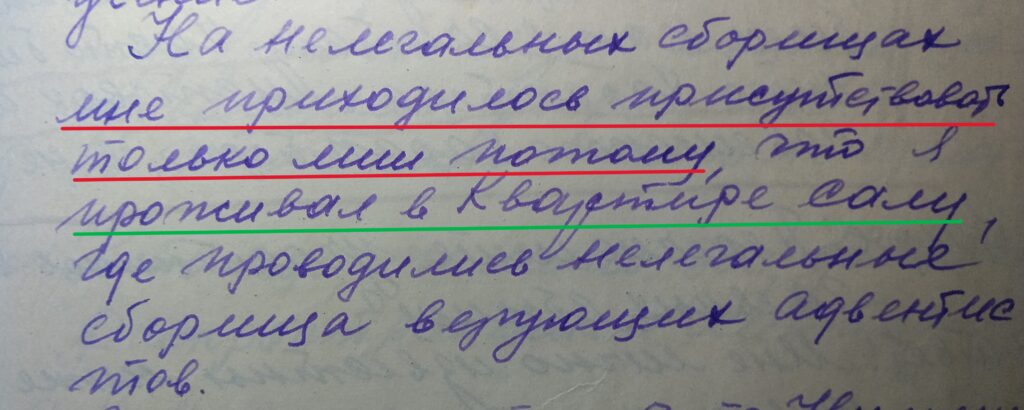 На нелегальных сборищах
мне приходилось присутствовать
только лиш потому, что я
проживал в квартире Сали,
где проводились нелегальные
сборища верующих адвентис
тов.